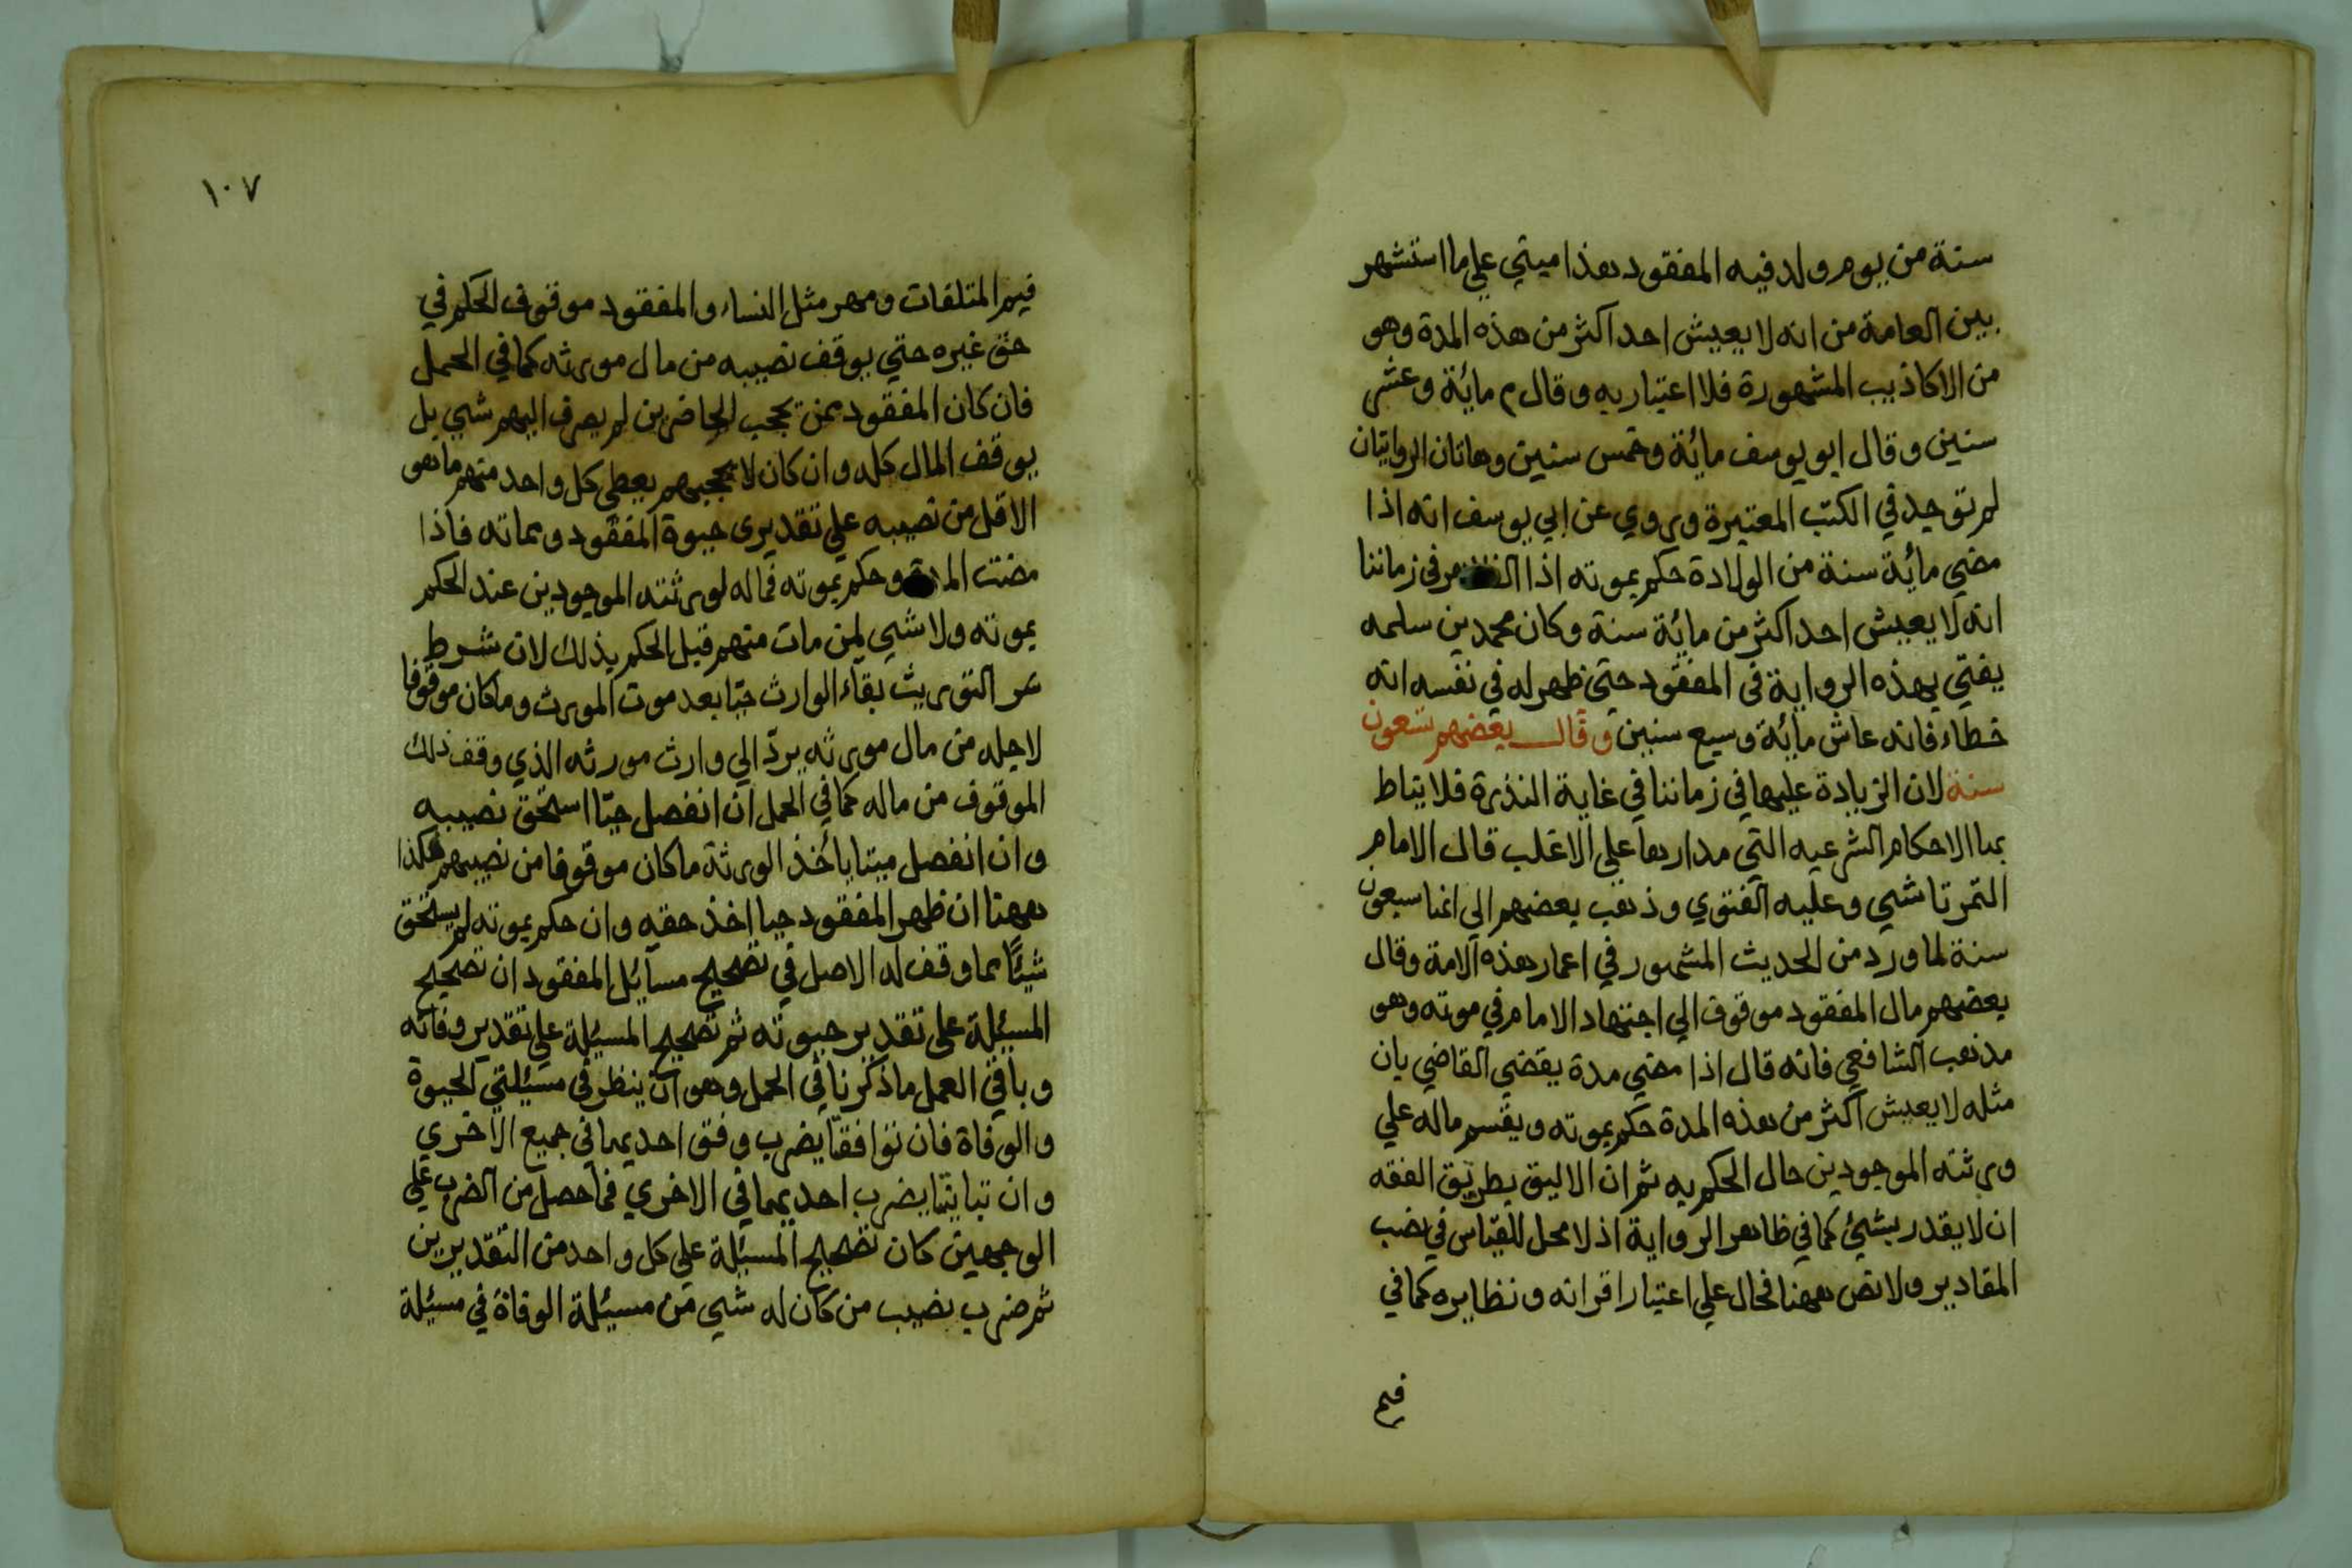 سنة من يوم ولد فيه المفقود هذا مبني علي ما استشهر
بين العامة من انه لا يعيش احد اكثر من هذه المدة وهو
من الاكاذيب المشهورة فلا اعتبار به وقال م مائة وعشر
سنين وقال ابو يوسف مائة وخمس سنين وهاتان الروايتان
لم توجد في الكتب المعتبرة وروي عن ابي يوسف انه اذا
مضي مائة سنة من الولادة حكم بموته اذا في زماننا
انه لا يعيش احد اكثر من مائة سنة وكان محمد بن سلمه
يفتي بهذه الرواية في المفقود حتي ظهر له في نفسه انه
خطاء فانه عاش مائة وسبع سنين وقال بعضهم تسعون
سنة لان الزيادة عليها في زماننا في غاية النذرة فلا يناط
بها الاحكام الشرعيه التي مدارها علي الاغلب قال الامام
التمرتاشي وعليه الفتوي وذهب بعضهم الي انها سبعون
سنة لما ورد من الحديث المشهور في اعمار هذه الامة وقال
بعضهم مال المفقود موقوف الي اجتهاد الامام في موته وهو
مذهب الشافعي فانه قال اذا مضي مدة يقضي القاضي بان
مثله لا يعيش اكثر من هذه المدة حكم بموته ويقسم ماله علي
ورثته الموجودين حال الحكم به ثم ان الاليق بطريق الفقه
ان لا يقدر بشئ كما في ظاهر الرواية اذ لا محل للقياس في نصب
المقادير ولا نص ههنا فحال علي اعتبار اقرانه ونظايره كما في
فيم
١٠٧
فيم المتلفات ومهر مثل النساء والمفقود موقوف الحكم في
حق غيره حتي يوقف نصيبه من مال مورثه كما في الحمل
فان كان المفقود ممن يحجب الحاضرين لم يصرف اليهم شي بل
يوقف المال كله وان كان لا يحجبهم يعطي كل واحد منهم ما هو
الاقل من نصيبه علي تقديري حيوة المفقود ومماته فاذا
مضت المدة وحكم بموته فماله لورثته الموجودين عند الحكم
بموته ولا شي لمن مات منهم قبل الحكم بذلك لان شرط
التوريث بقاء الوارث حيا بعد موت المورث وما كان موقوفا
لاجله من مال مورثه يردّ الي وارث مورثه الذي وقف ذلك
الموقوف من ماله كما في الحمل ان انفصل حيّا استحق نصيبه
وان انفصل ميتا يأخذ الورثة ما كان موقوفا من نصيبهم هكذا
ههنا ان ظهر المفقود حيا اخذ حقه وان حكم بموته لم يستحق
شيئًا مما وقف له الاصل في تصحيح مسايل المفقود ان تصحيح
المسيلة علي تقدير حيوته ثم تصحيح المسيلة علي تقدير وفاته
وباقي العمل ما ذكرنا في الحمل وهو ان ينظر في مسيلتي الحيوة
والوفاة فان توافقتا يضرب وفق احديهما في جميع الاخري
وان تباينتا يضرب احديهما في الاخري فما حصل من الضرب علي
الوجهين كان تصحيح المسيلة علي كل واحد من التقديرين
ثم ضرب نصيب من كان له شي من مسيلة الوفاة في مسيلة